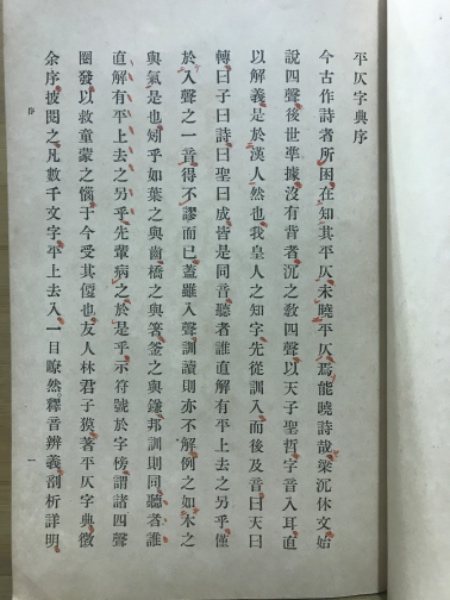 平仄字典序
今古作詩者所困在知其平仄未曉平仄焉能曉詩哉梁沉休文始
說四聲後世準據沒有背者沉之敎四聲以天子聖哲字音入耳直
以解義是於漢人然也我皇人之知字先從訓入而後及音曰天曰
轉曰子曰詩曰聖曰成皆是同音聽者誰直解有平上去之另乎僅
於入聲之一音得不謬而已蓋雖入聲訓讀則亦不解例之如木之
與氣是也矧乎如葉之與齒橋之與箸釜之與鎌邦訓則同聽者誰
直解有平上去之另乎先輩病之於是乎示符號於字傍謂諸四聲
圈發以救童蒙之惱于今受其僾也友人林君子䝤著平仄字典徵
余序披閱之凡數千文字平上去入一目瞭然釋音辨義剖析詳明
序
一